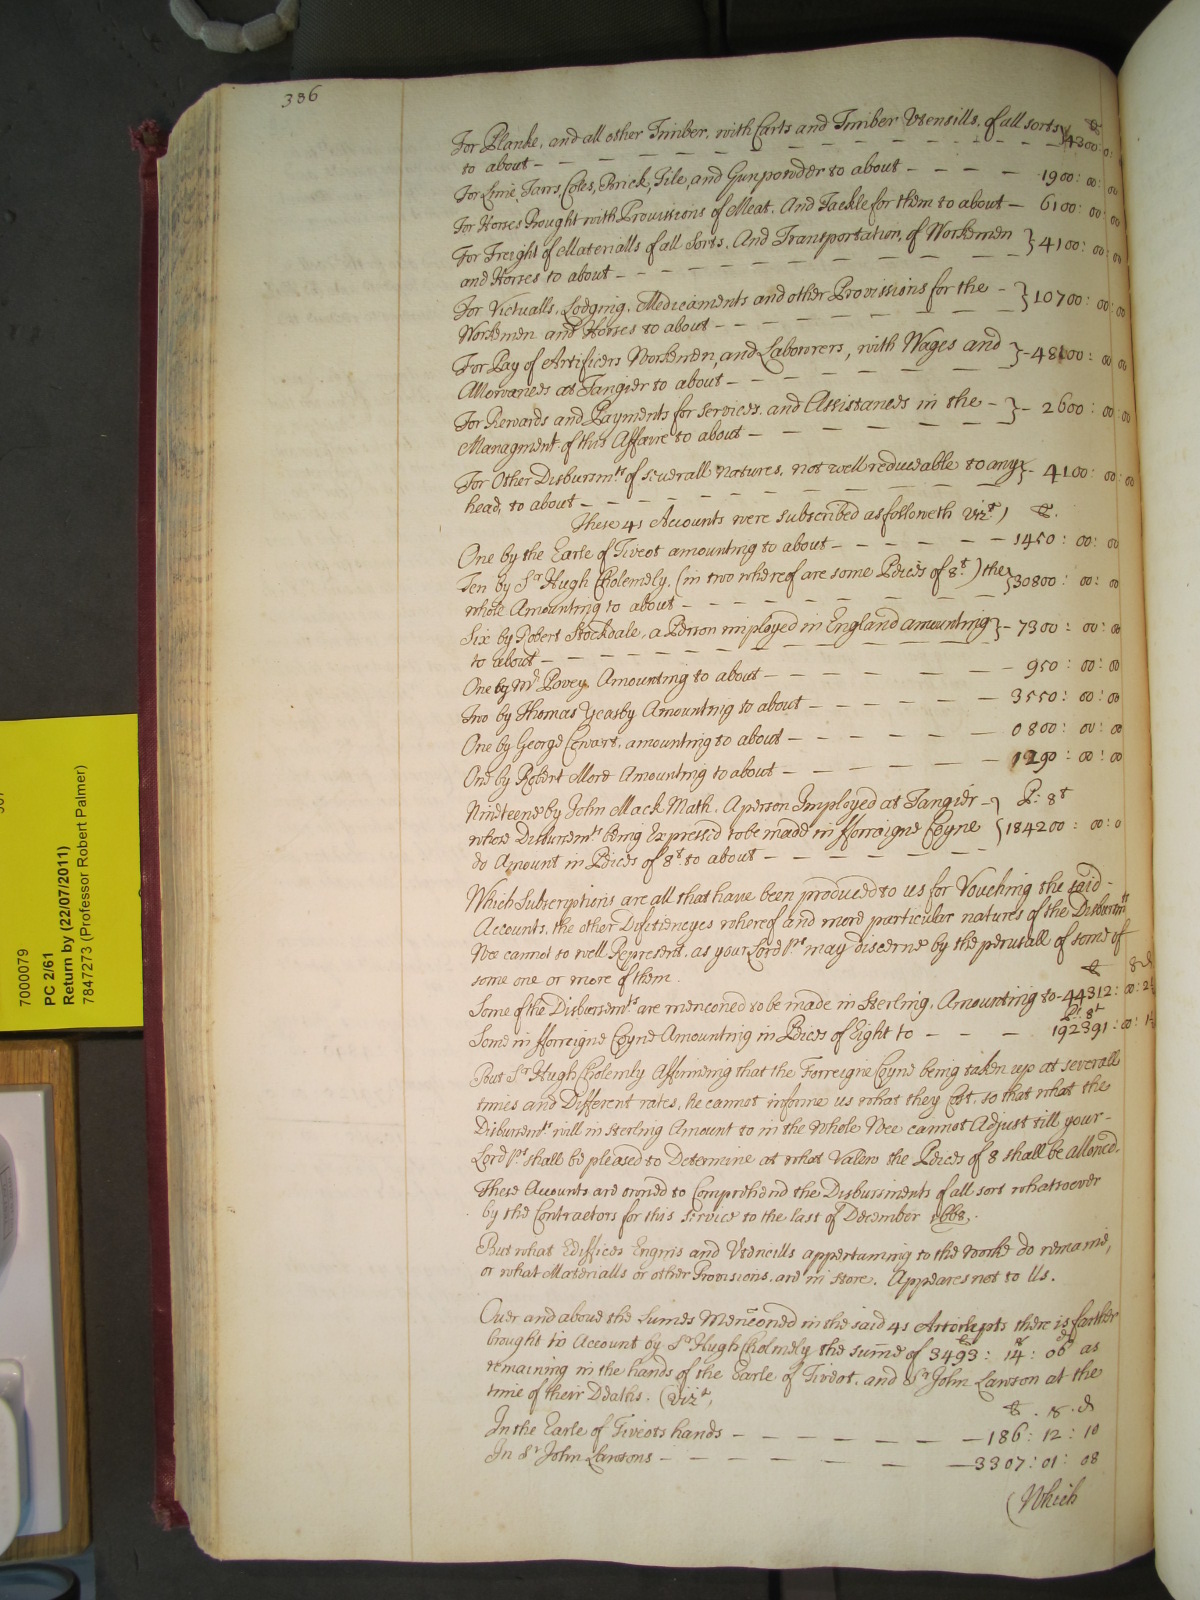 336
For Planke, and all other Timber, with Carts and Timber Utensills, of all sorts
to about — 4300
For Lime, Tarrs, Coles, Brick, Tile, and Gunpowder to about — 1900: 00: 00
For Horses Brought with Provissions of Meat, And Tackle for them to about — 6100: 00: 00
For Freight of Materialls of all Sorts, And Transportation, of Workemen } 4100: 00: 00
and Horses to about —
For Victualls, Lodging, Medicaments and other Provissions for the — } 10700: 00: 00
Workemen and Horses to about —
For Pay of Artificers Workemen, and Labourers, with Wages and } 48100: 00 00
Allowances at Tangier to about —
For Rewards and Payments for Services, and Assistances in the — } 2600: 00: 00
Managment of this Affaire to about —
For Other Disbursmts of severall natures, not well reduceable to any } 4100: 00: 00
head, to about —
These 41 Accounts were subscribed as followeth Vizt) £.
One by the Earle of Tiveot amounting to about — 1450: 00: 00
Ten by Sr Hugh Cholemely, (in two whereof are some Peices of 8t.) the } 30800: 00: 00
whole Amounting to about —
Six by Robert Stockdale, a Person imployed in England amounting } 7300: 00: 00
to about —
One by Mr Povey Amounting to about — 950: 00: 00
Two by Thomas Yeasby Amounting to about — 3550: 00: 00
One by George Cewart, amounting to about — 0800: 00: 00
One by Robert More Amounting to about — 1290: 00: 00
Nineteene by John Mack Math, A person Imployed at Tangier — } P: 8t
whose Disbursemts being Expressed to be made in fforreigne Coyne { 184200: 00: 0
do Amount in Peices of 8t. to about —
Which Subscriptions are all that have been produced to us for Vouching the said -
Accounts, the other Defitieneyes whereof and more particular natures of the Disbursmts
Wee cannot so well Represent, as your Lordpps may discerne by the perusall of some of
some one or more of them.
£ s d
Some of the Disbursemts are menconed to be made in Sterling, Amounting to - 44312: 00: 2
P: 8t
Some in fforreigne Coyne Amounting in Peices of Eight to — 192391: 00: 1
But Sr Hugh Cholemly Affirming that the Forreigne Coyne being taken up at severall
times and Different rates, he cannot informe us what they Cost, so that what the
Disbursemts will in Sterling Amount to in the Whole Wee cannot Adjust till your -
Lordpps shall be pleased to Determine at what Valew the Peices of 8 shall be allowed.
These Accounts are owned to Comprehend the Disbursments of all sort whatsoever
by the Contractors for this service to the last of December 1668.
But what Ediffices Engins and Utencills appertaining to the worke do remaine,
or what Materialls or other Provisions, are in store, Appeares not to Us.
Over and above the Sumes Menconed in the said 41 Accompts there is farther
brought to Account by Sr Hugh Cholmely the summe of 3493: 14: 06 as
remaining in the hands of the Earle of Tiveot, and Sr John Lawson at the
time of their Deaths. (Vizt,
£ . s . d
In the Earle of Tiveots hands — 186: 12: 10
In Sr John Lawsons — 3307: 01: 08
(Which
7000079
PC 2/61
Return by (22/07/2011)
7847273 (Professor Robert Palmer)